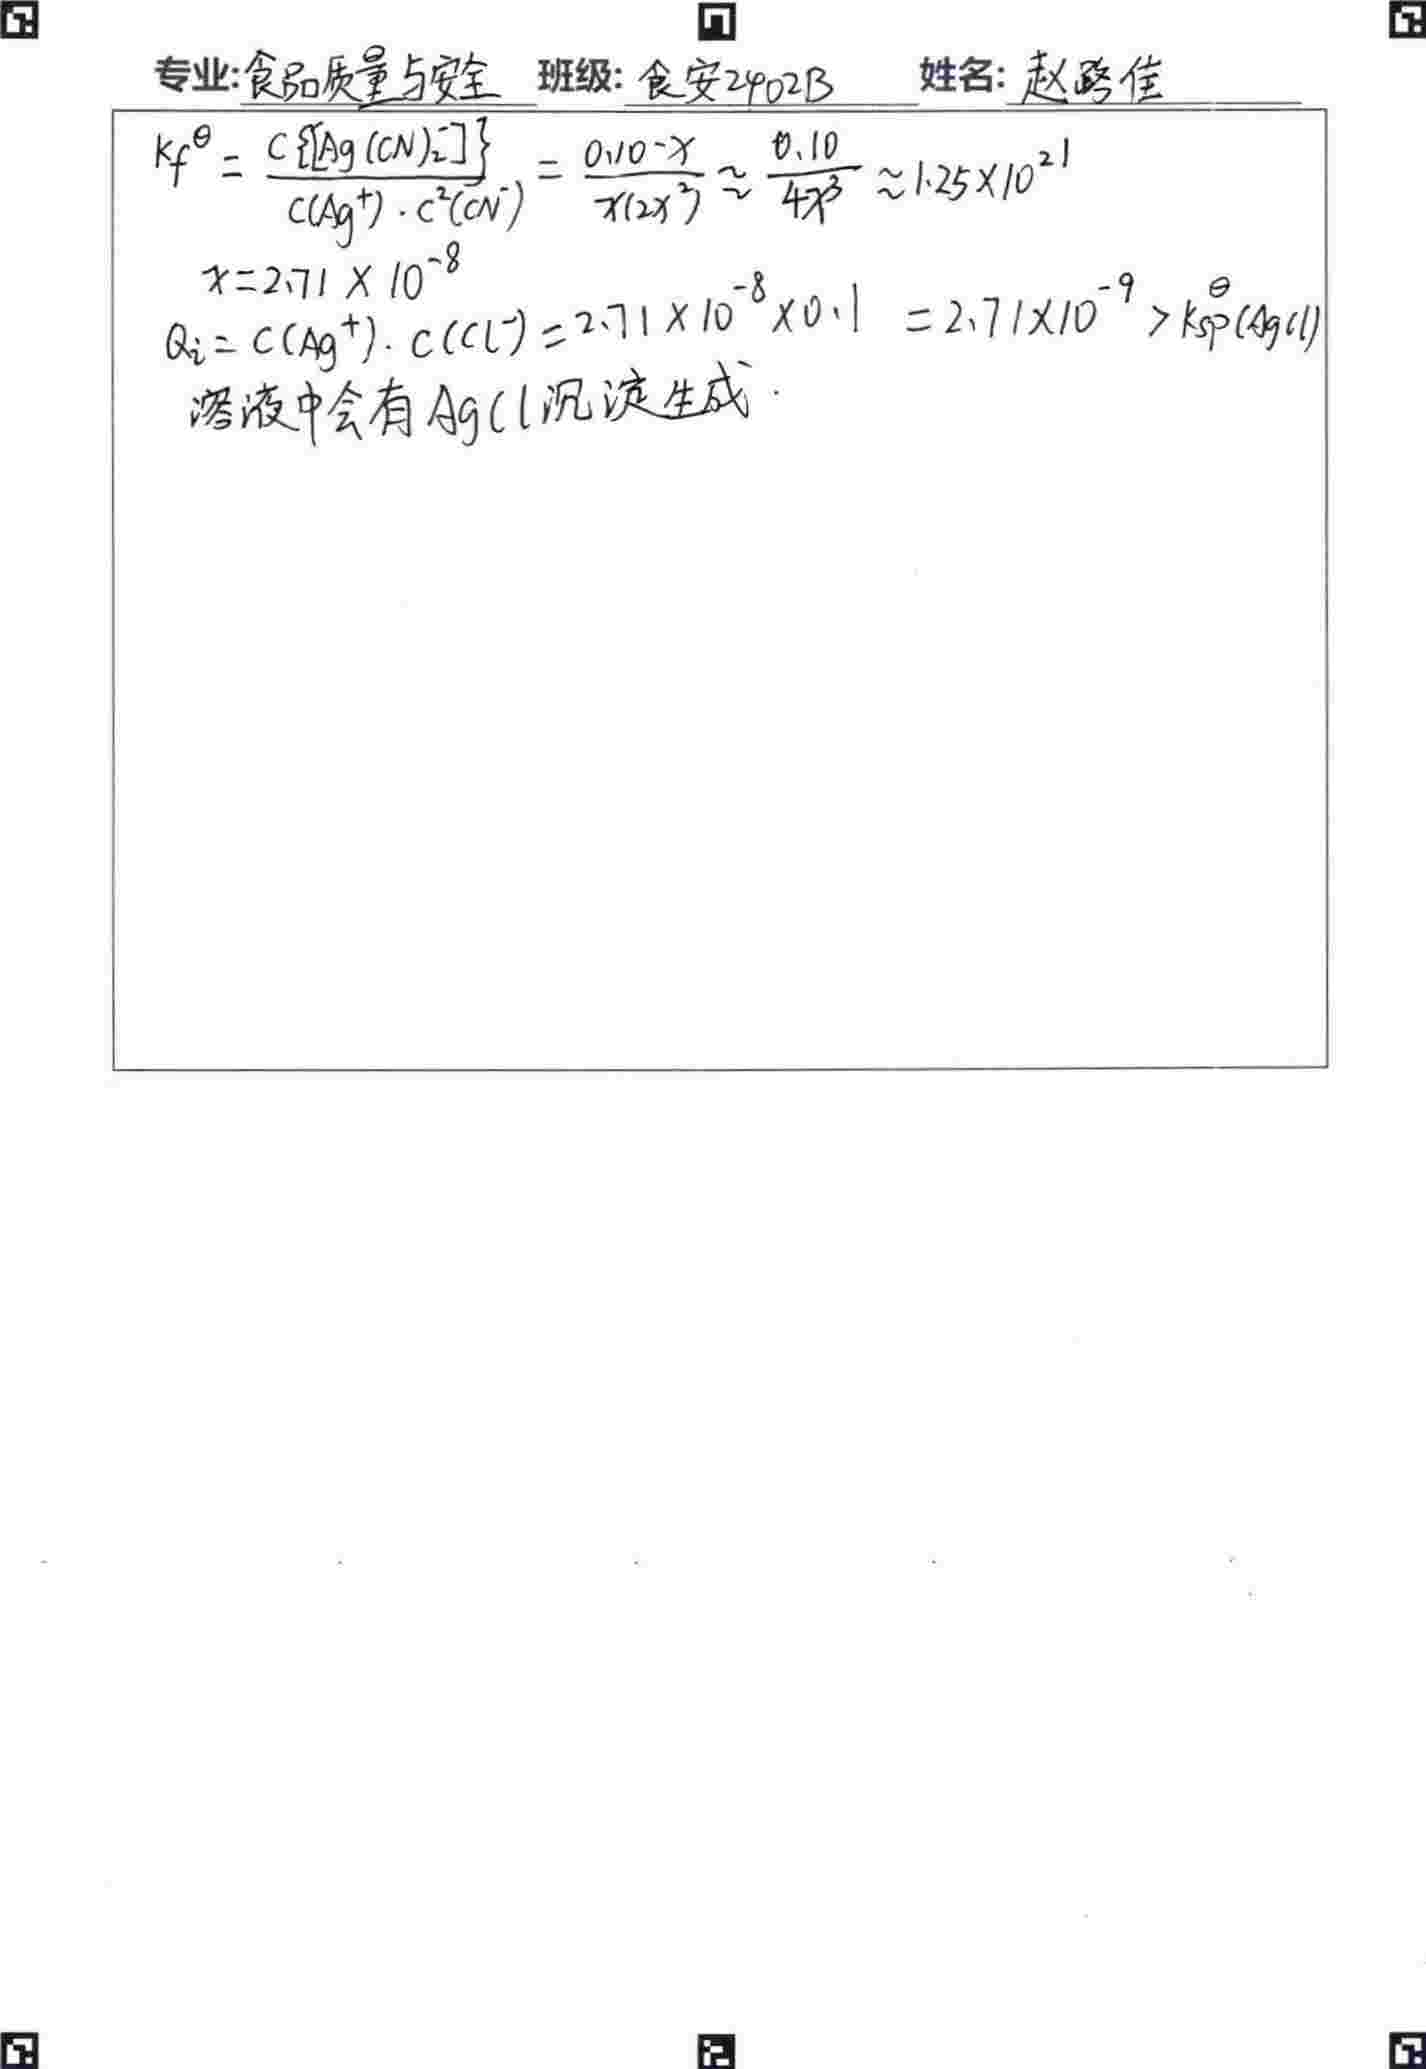 专业:食品质量与安全 班级:食安2402B 姓名:赵路佳
Kf^θ = C{[Ag(CN)₂⁻]} / C(Ag⁺)·C²(CN⁻) = 0.10-x / x(2x²) ≈ 0.10 / 4x³ ≈ 1.25×10²¹
x=2.71×10⁻⁸
Qi = C(Ag⁺)·C(Cl⁻) = 2.71×10⁻⁸×0.1 = 2.71×10⁻⁹ > Ksp^θ(AgCl)
溶液中会有AgCl沉淀生成.